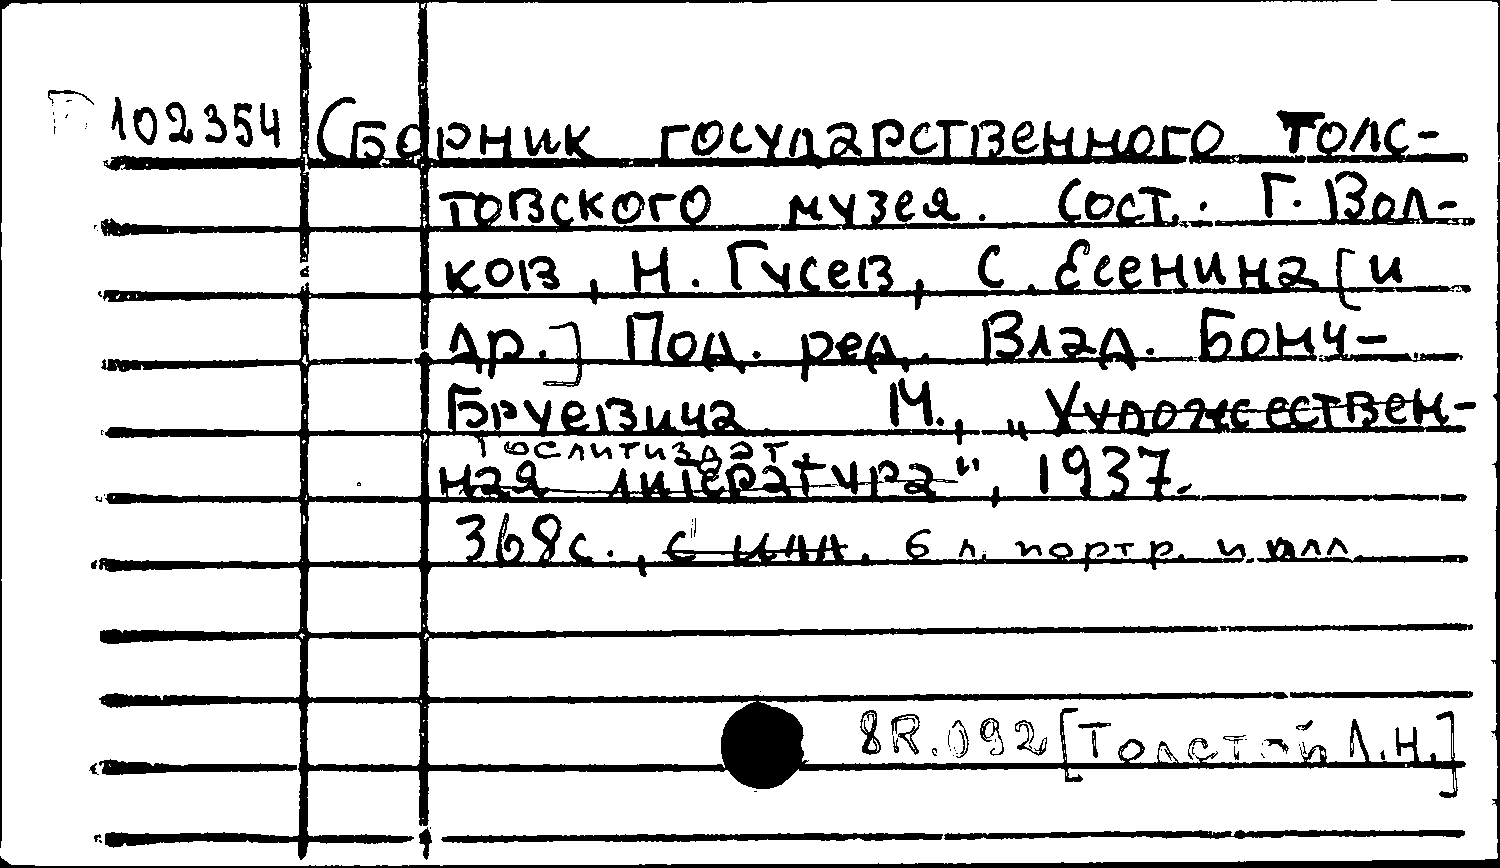 102354 Сборник государственного Толс-
товского музея. Сост.: Г. Вол-
ков, Н. Гусев, С. Есенина [и
др.] Под. ред. Влад. Бонч-
Бруевича. М., „Художествен-
Гослитиздат.
ная литература“, 1937.
368с., с илл. 6 л. портр. и илл.
8R.092 [Толстой Л.Н.]